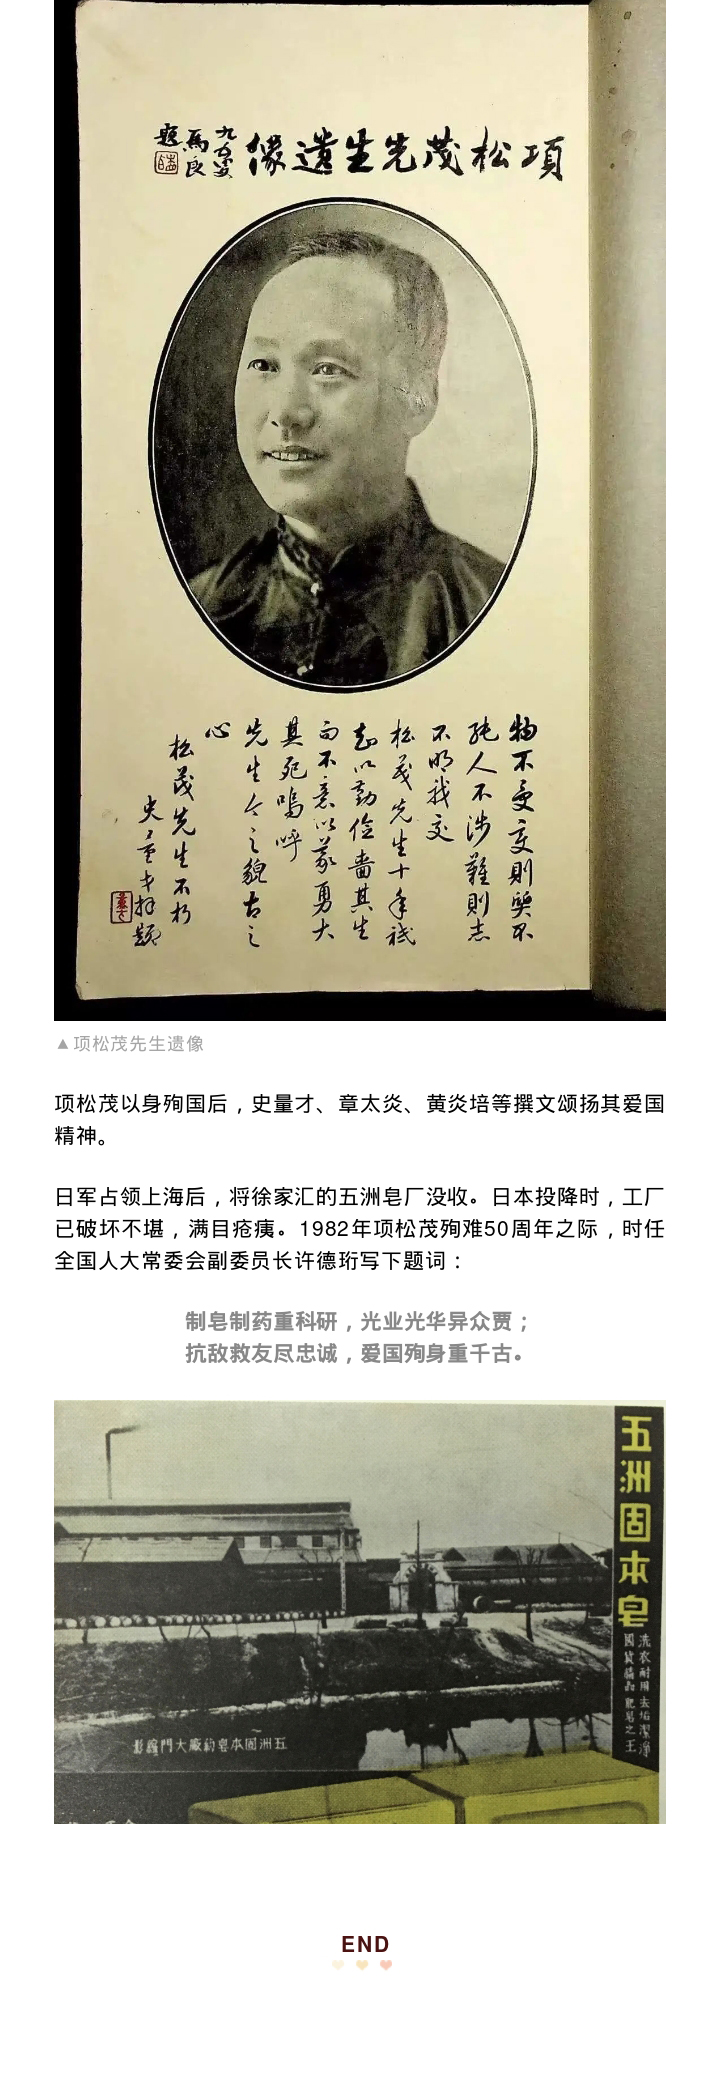 項松茂先生遺像
九五叟
馬良
題
物不受変則奭不
純人不涉難則志
不明我交
松茂先生十年祗
知以勤儉嗇其生
而不意以義勇大
其死嗚呼
先生今之貌古之
心
松茂先生不朽
史量才拜題
▲项松茂先生遗像
项松茂以身殉国后，史量才、章太炎、黄炎培等撰文颂扬其爱国
精神。
日军占领上海后，将徐家汇的五洲皂厂没收。日本投降时，工厂
已破坏不堪，满目疮痍。1982年项松茂殉难50周年之际，时任
全国人大常委会副委员长许德珩写下题词：
制皂制药重科研，光业光华异众贾；
抗敌救友尽忠诚，爱国殉身重千古。
五洲固本皂
洗衣耐用去垢潔淨
國貨精品肥皂之王
五洲固本皂葯廠大門攝影
END